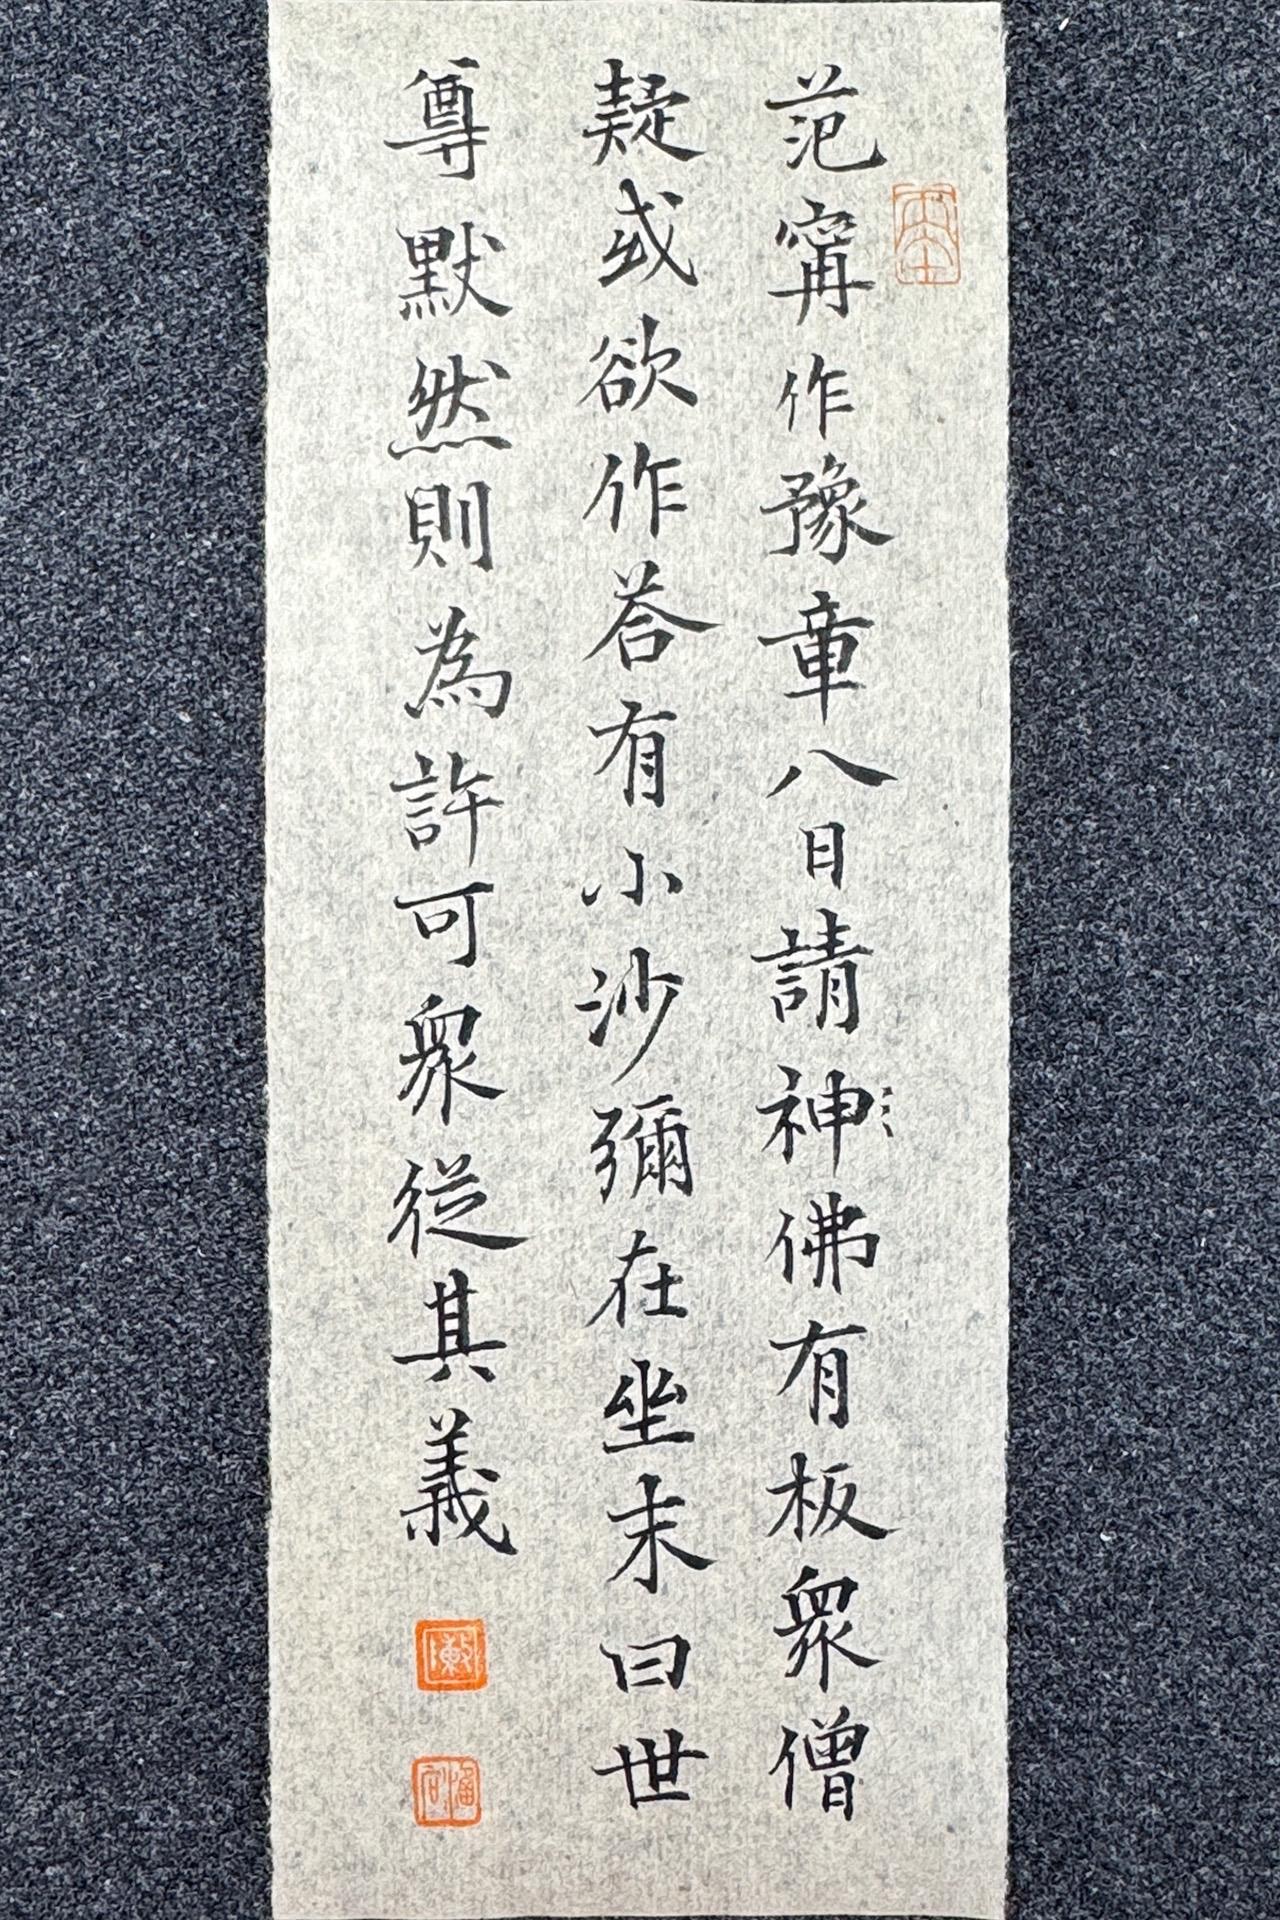 范甯作豫章八日請神佛有板衆僧
疑或欲作荅有小沙彌在坐末曰世
尊默然則為許可衆從其義